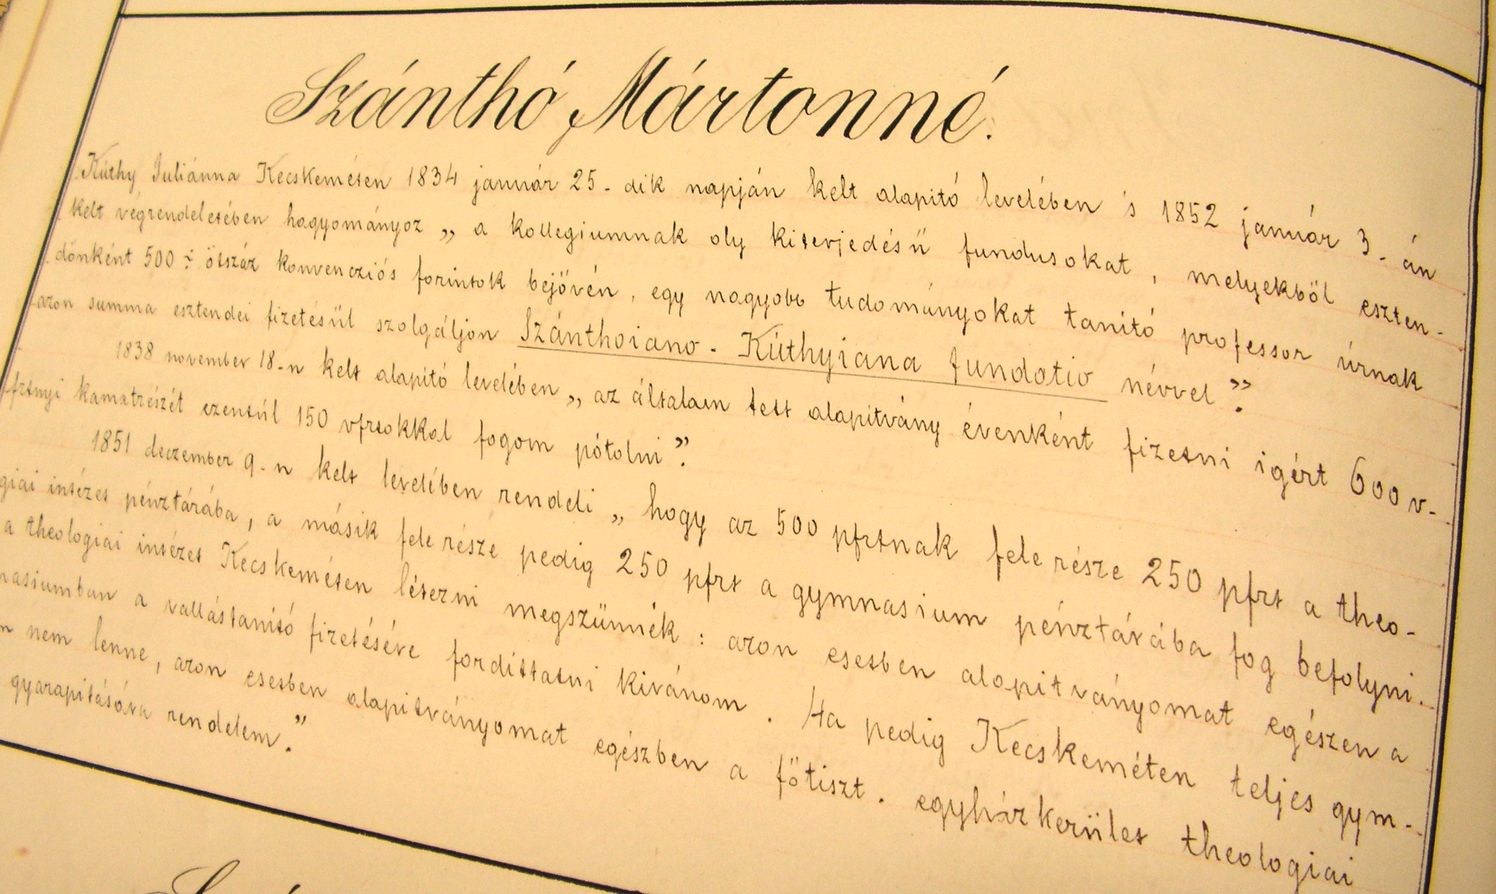 Szánthó Mártonné.
Kúthy Juliánna Kecskeméten 1834 január 25-dik napján kelt alapító levelében 's 1852 január 3-án
kelt végrendeletében hagyományoz „a kollegiumnak oly kiterjedésű fundusokat, melyekből eszten-
dőnként 500 ÷ ötszáz konvencziós forintok bejövén, egy nagyobb tudományokat tanító professor úrnak
azon summa esztendei fizetésül szolgáljon Szánthoiano-Kúthyiana fundatio névvel".
1838 november 18-n kelt alapító levelében „az általam tett alapitvány évenként fizetni igért 600 v-
frtnyi kamatrészét ezentúl 150 vfrtokkal fogom pótolni".
1851 deczember 9-n kelt levelében rendeli „hogy az 500 pfrtnak fele része 250 pfrt a theo-
giai intézet pénztárába, a másik fele része pedig 250 pfrt a gymnasium pénztárába fog befolyni.
a theologiai intézet Kecskeméten létezni megszünnék: azon esetben alapitványomat egészen a
nasiumban a vallástanító fizetésére fordittatni kivánom. Ha pedig Kecskeméten teljes gym-
n nem lenne, azon esetben alapitványomat egészben a főtiszt. egyházkerület theologiai
gyarapitására rendelem."